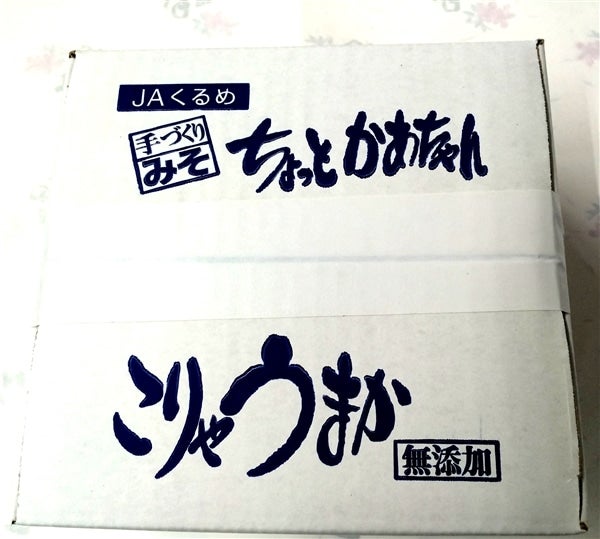 JAくるめ
手づくり
みそ
ちょっとかあちゃん
こりゃうまか
無添加